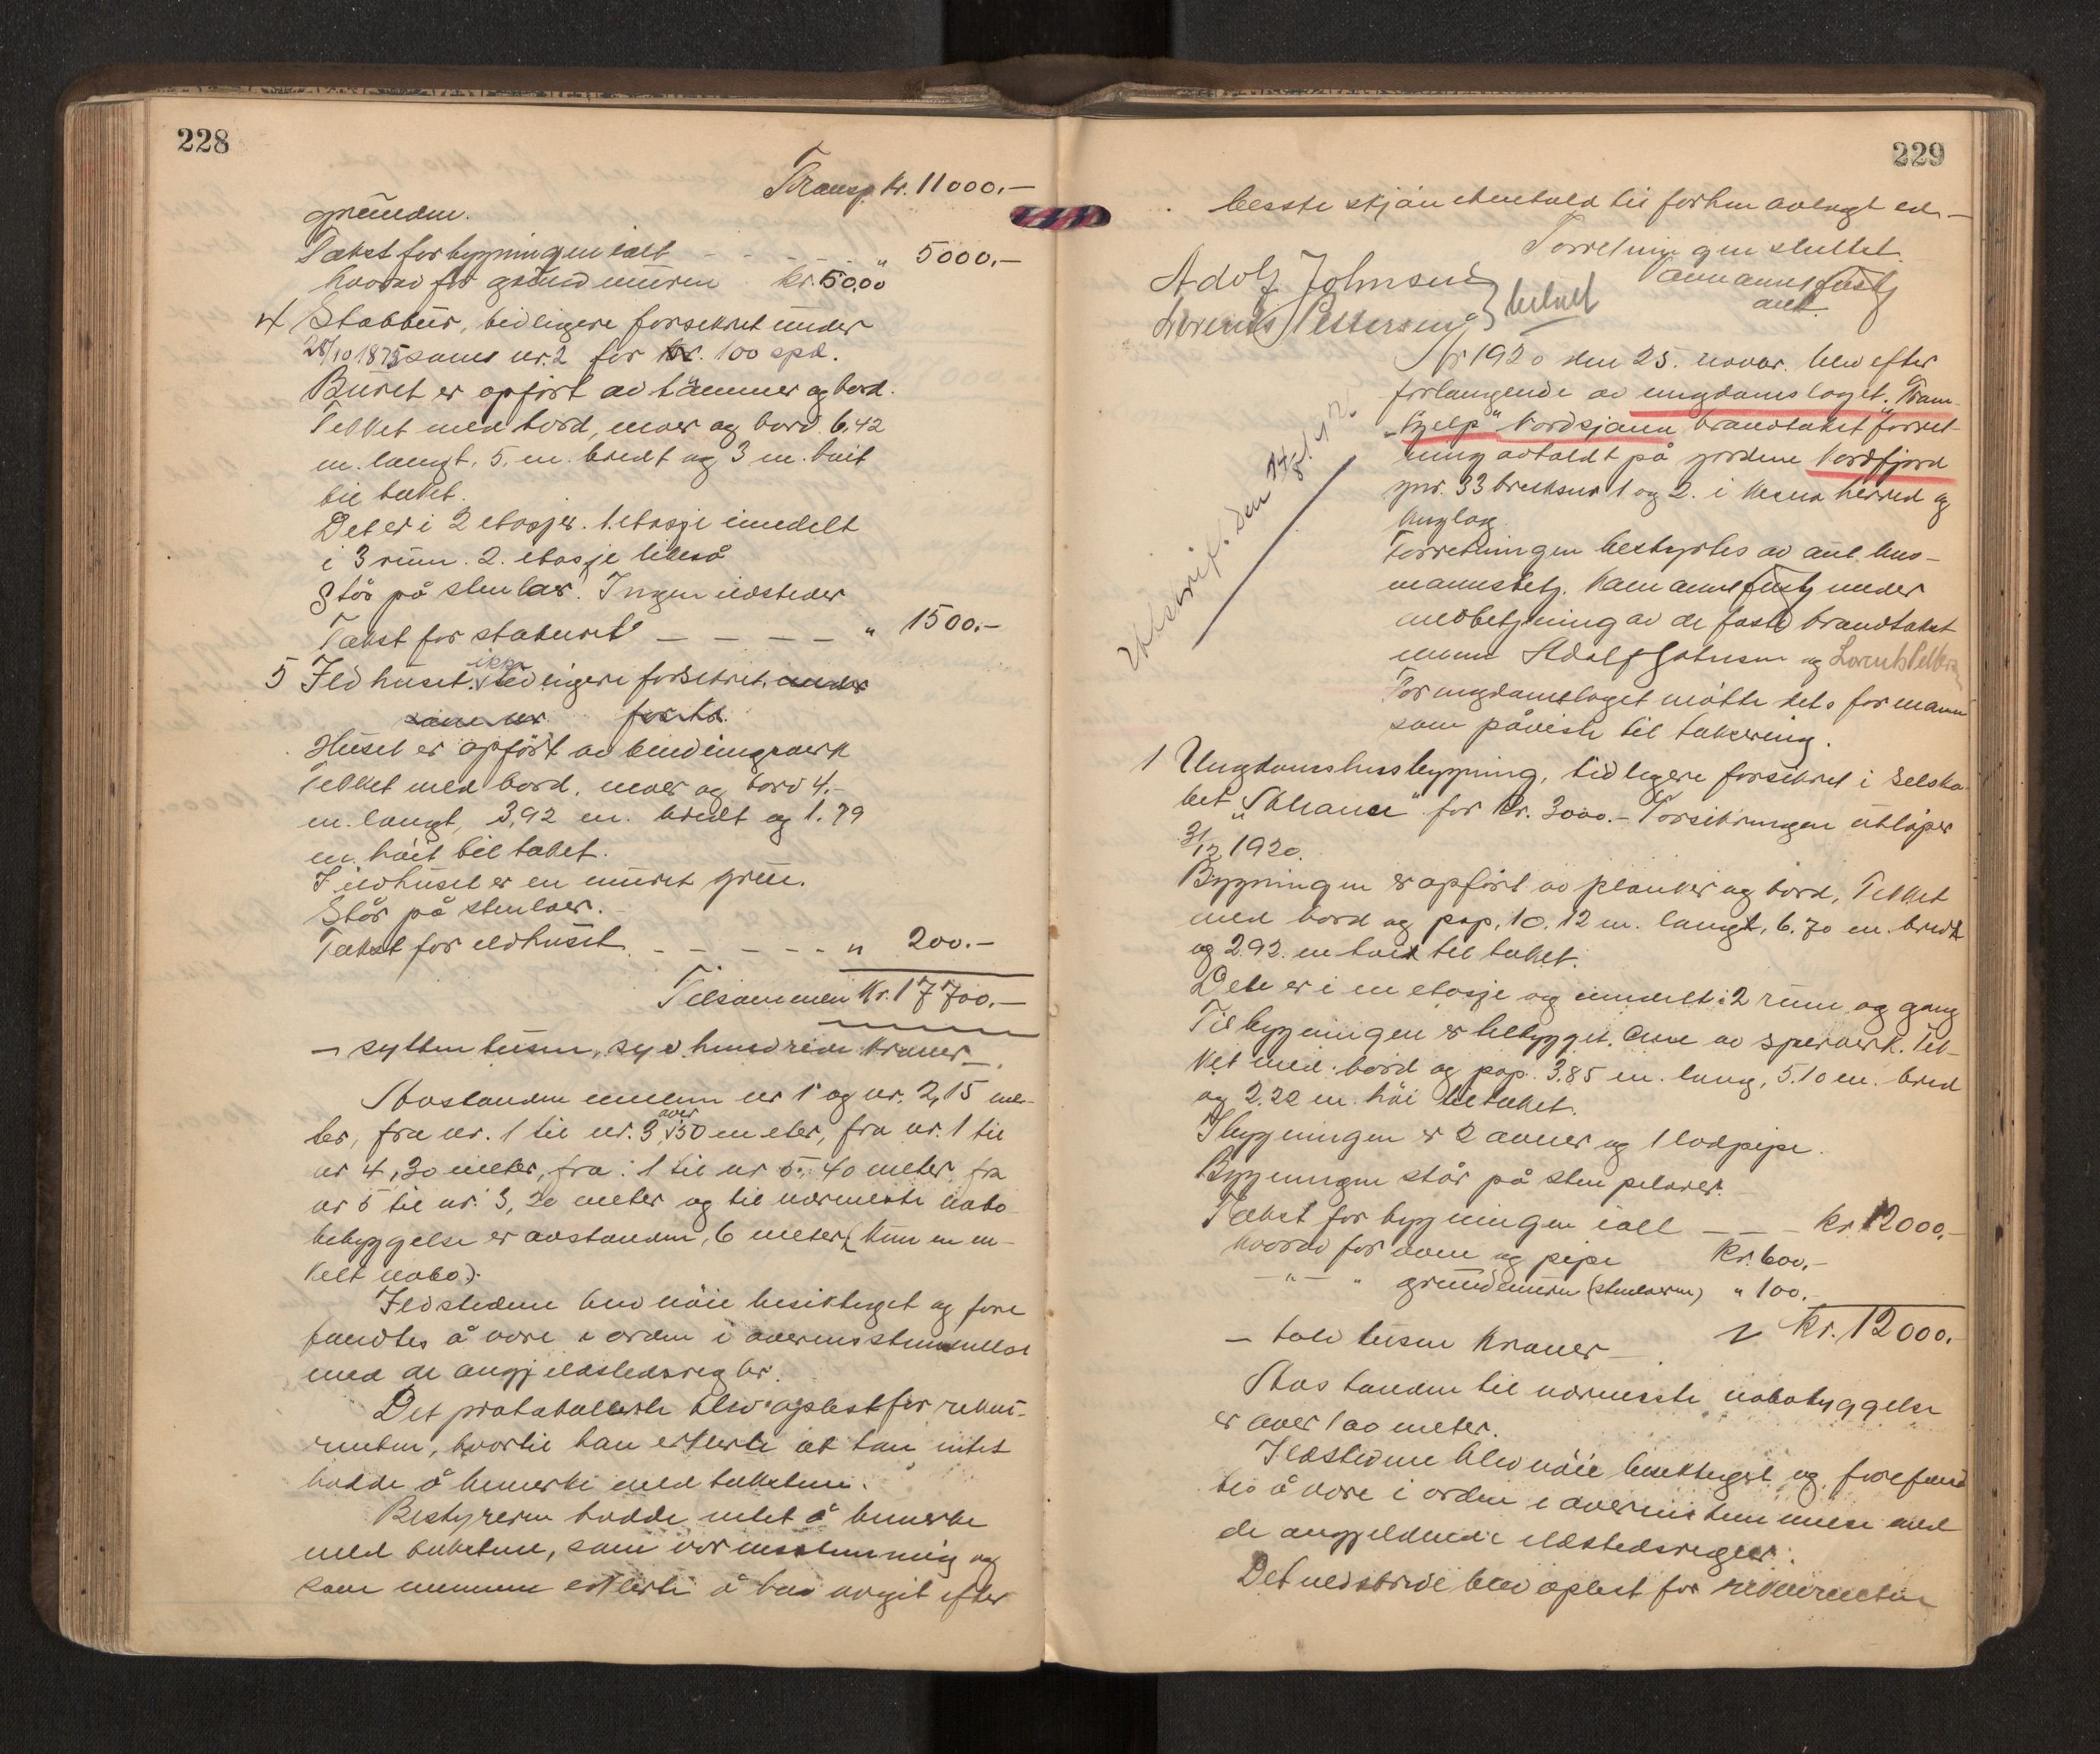 228
Transp. kr. 11000.-
grunden.
Takst for bygningen ialt - - - " 5000.-
hvorav for grundmuren kr. 50,00
4 Stabbur, tidligere forsikret under
28/10 1875 som nr. 2 for 100 spd.
Buret er opført av tømmer og bord.
Tekket med bord, never og bord. 6,42
m. langt, 5. m. bredt og 3 m. høit
til taket.
Det er i 2 etasjer. 1 etasje inndelt
i 3 rum. 2. etasje likeså
Står på stenlaer. Ingen ildsteder
Takst for staburet - - - - " 1500.-
5 Ildhuset. ikke tidligere forsikret. under
som nr. for kr.
Huset er opført av bindingsverk
Tekket med bord, never og torv 4.-
m. langt, 3,92 m. bredt og 1.79
m. høit til taket.
I ildhuset er en muret grue.
Står på stenlaer.
Takst for ildhuset - - - - - " 200.-
Tilsammen kr. 17700.-
- sytten tusen, syv hundrede kroner -
Avstanden mellem nr 1 og nr. 2, 15 me-
ter, fra nr. 1 til nr. 3 over 50 meter, fra nr. 1 til
nr 4, 30 meter, fra 1 til nr 5, 40 meter, fra
nr 5 til nr. 3, 20 meter og til nærmeste nabo-
bebyggelse er avstanden, 6 meter (kun en en-
kelt nabo).
Ildstedene blev nøie besiktiget og fore
fandtes å være i orden i overensstemmelse
med de angj ildstedsregler.
Det protokollerte blev oplest for rekvi-
renten, hvortil han erklerte at han intet
hadde å bemerke med taksten.
Bestyreren hadde intet å bemerke
med taksten, som var enstemmig og
som mennene erklerte å ha avgit efter
229
beste skjøn i henhold til forhen avlagt ed. -
Forretningen sluttet.
Adolf Johnsen
aut.
Lorents Pettersen
betalt
År 1920 den 25. novbr. blev efter
forlangende av ungdomslaget "Fram-
hjelp" Nordsjøna brandtakst forret-
ning avholdt på gården Nordfjord
gnr. 33 bruksnr 1 og 2. i Nesna herred og
tinglag.
Utskrift. den
Forretningen bestyrtes av aut. lens-
mannsbetj. under
medbetjening av de faste brandtakst
menn Adolf Johnsen og Lorents Petters
For ungdomslaget møtte dets formann
som påviste til taksering.
1 Ungdomshusbygning, tidligere forsikret i selska-
bet for kr. 3000.- Forsikringen utløper
31/12 1920.
Bygningen er opført av planker og bord, Tekket
med bord og pap, 10.12 m. langt, 6.70 m. bredt
og 2.92. m høit til taket.
Den er i en etasje og inndelt i 2 rum og gang
Til bygningen er tilbygget av sperverk. Tek-
ket med bord og pap. 3.85 m. lang, 5.10 m. bred
og 2.22 m. høi til taket.
I bygningen er 2 ovner og 1 lodpipe.
Bygningen står på sten pelarer.
Takst for bygningen ialt - - - kr. 12000.-
hvorav for ovn og pipe kr. 600.-
- " - " grundmuren (stenlaerne) " 100.-
kr. 12000.-
- tolv tusen kroner -
Avstanden til nærmeste nabobyggelse
er over 100 meter.
Ildstedene blev nøie besiktiget og forefand
tes å være i orden i overensstemmelse med
de angjeldende ildstedsregler.
Det nedskrevne blev oplest for rekvirenten